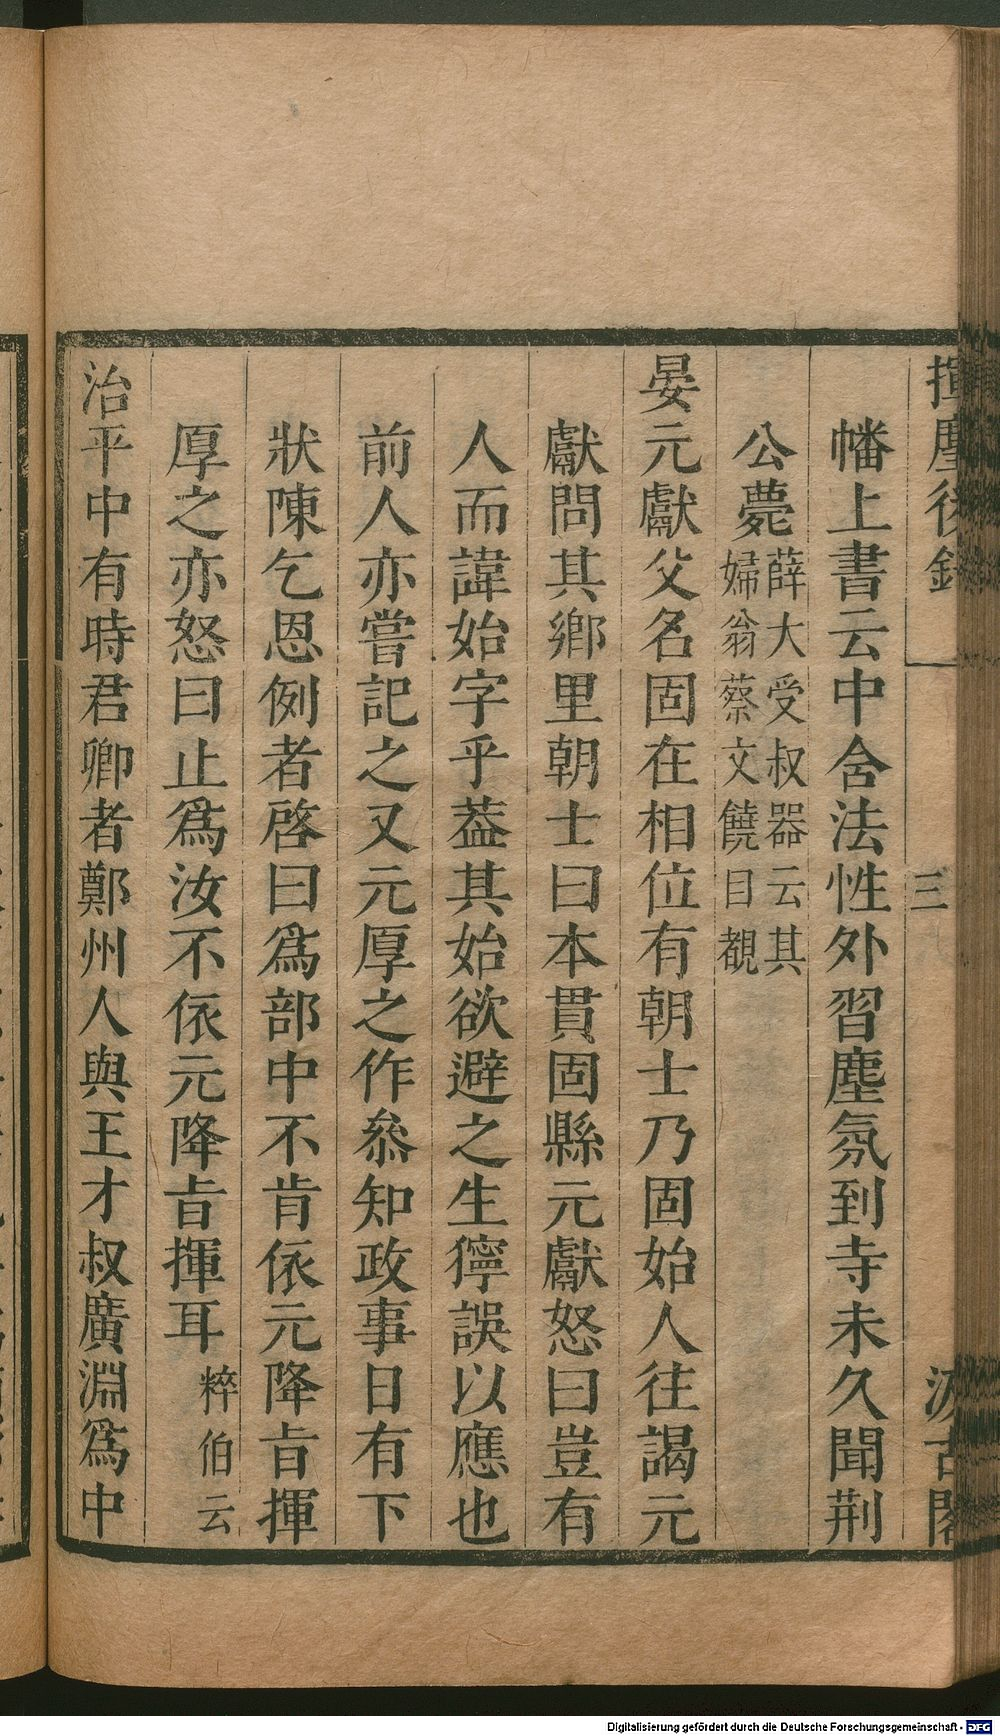 揮麈後錄
三
汲古閣
幡上書云中舍法性外習塵氛到寺未久聞荆
公薨薛大受叔器云其
婦翁蔡文饒目覩
晏元獻父名固在相位有朝士乃固始人往謁元
獻問其鄉里朝士曰本貫固縣元獻怒曰豈有
人而諱始字乎葢其始欲避之生獰誤以應也
前人亦嘗記之又元厚之作叅知政事日有下
狀陳乞恩例者啓曰爲部中不肯依元降㫖揮
厚之亦怒曰止爲汝不依元降㫖揮耳粹伯云
治平中有時君卿者鄭州人與王才叔廣淵爲中
Digitalisierung gefördert durch die Deutsche Forschungsgemeinschaft - DFG